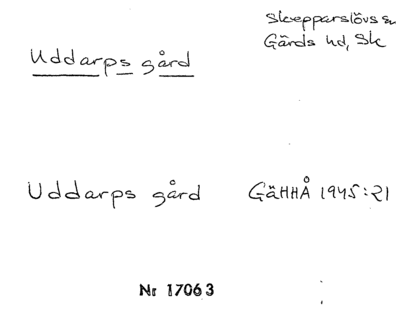 Skepparslövs sn
Gärds hd, Sk
Uddarps gård
Uddarps gård GäHHÅ 1945:21
Nr 17063